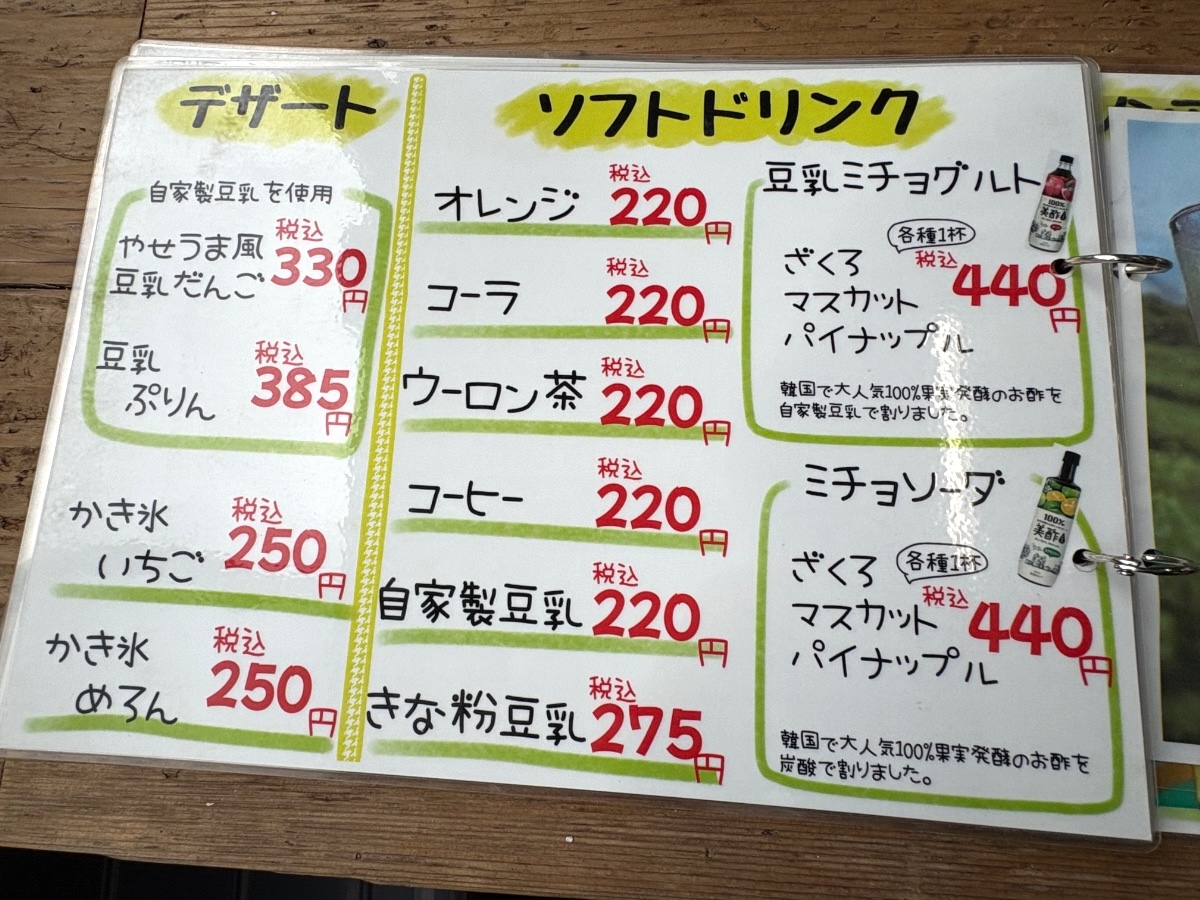 デザート
自家製豆乳を使用
やせうま風
豆乳だんご
税込
330円
豆乳
ぷりん
税込
385円
かき氷
いちご
税込
250円
かき氷
めろん
税込
250円
ソフトドリンク
オレンジ
税込
220円
コーラ
税込
220円
ウーロン茶
税込
220円
コーヒー
税込
220円
自家製豆乳
税込
220円
きな粉豆乳
税込
275円
豆乳ミチョグルト
100%
美酢
各種1杯
ざくろ
マスカット
パイナップル
税込
440円
韓国で大人気100%果実発酵のお酢を
自家製豆乳で割りました。
ミチョソーダ
100%
美酢
各種1杯
ざくろ
マスカット
パイナップル
税込
440円
韓国で大人気100%果実発酵のお酢を
炭酸で割りました。